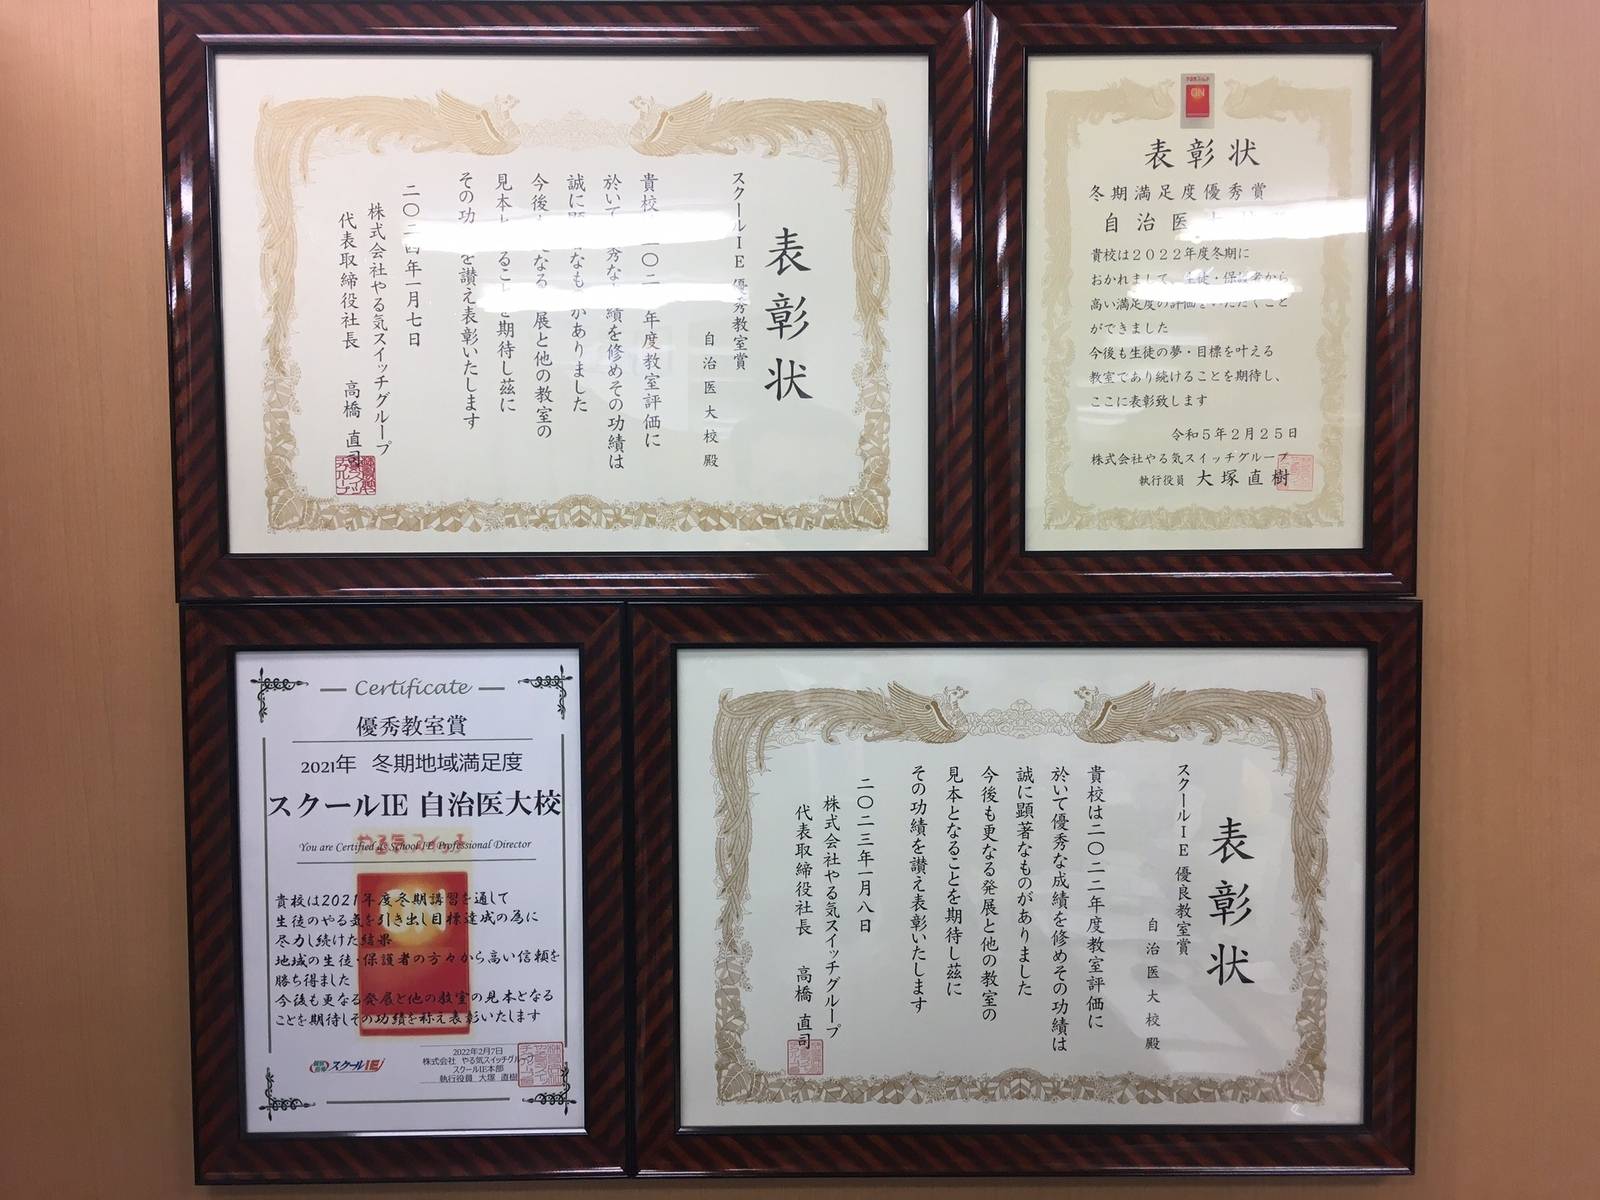 表彰状
スクールIE 優秀教室賞
自治医大校殿
貴校 二〇二 年度教室評価に
於いて 秀な 績を修めその功績は
誠に顕 なものがありました
今後 なる 展と他の教室の
見本と ること 期待し茲に
その功 を讃え表彰いたします
二〇二四年一月七日
株式会社やる気スイッチグループ
代表取締役社長 高橋 直司
やる気スイッチ
ON
表彰状
冬期満足度優秀賞
自治医
貴校は2022年度冬期に
おかれまして、生徒・保護者から
高い満足度の評価をいただくこと
ができました
今後も生徒の夢・目標を叶える
教室であり続けることを期待し、
ここに表彰致します
令和5年2月25日
株式会社やる気スイッチグループ
執行役員 大塚直樹
Certificate
優秀教室賞
2021年 冬期地域満足度
スクールIE 自治医大校
やる気スイッチ
You are Certified as School IE Professional Director
貴校は2021年度冬期講習を通して
生徒のやる気を引き出し目標達成の為に
尽力し続けた結果
地域の生徒・保護者の方々から高い信頼を
勝ち得ました
今後も更なる発展と他の教室の見本となる
ことを期待しその功績を称え表彰いたします
個別指導 スクールIE
2022年2月7日
株式会社 やる気スイッチグループ
スクールIE本部
執行役員 大塚 直樹
表彰状
スクールIE 優良教室賞
自治医大校殿
貴校は二〇二二年度教室評価に
於いて優秀な成績を修めその功績は
誠に顕著なものがありました
今後も更なる発展と他の教室の
見本となることを期待し茲に
その功績を讃え表彰いたします
二〇二三年一月八日
株式会社やる気スイッチグループ
代表取締役社長 高橋 直司